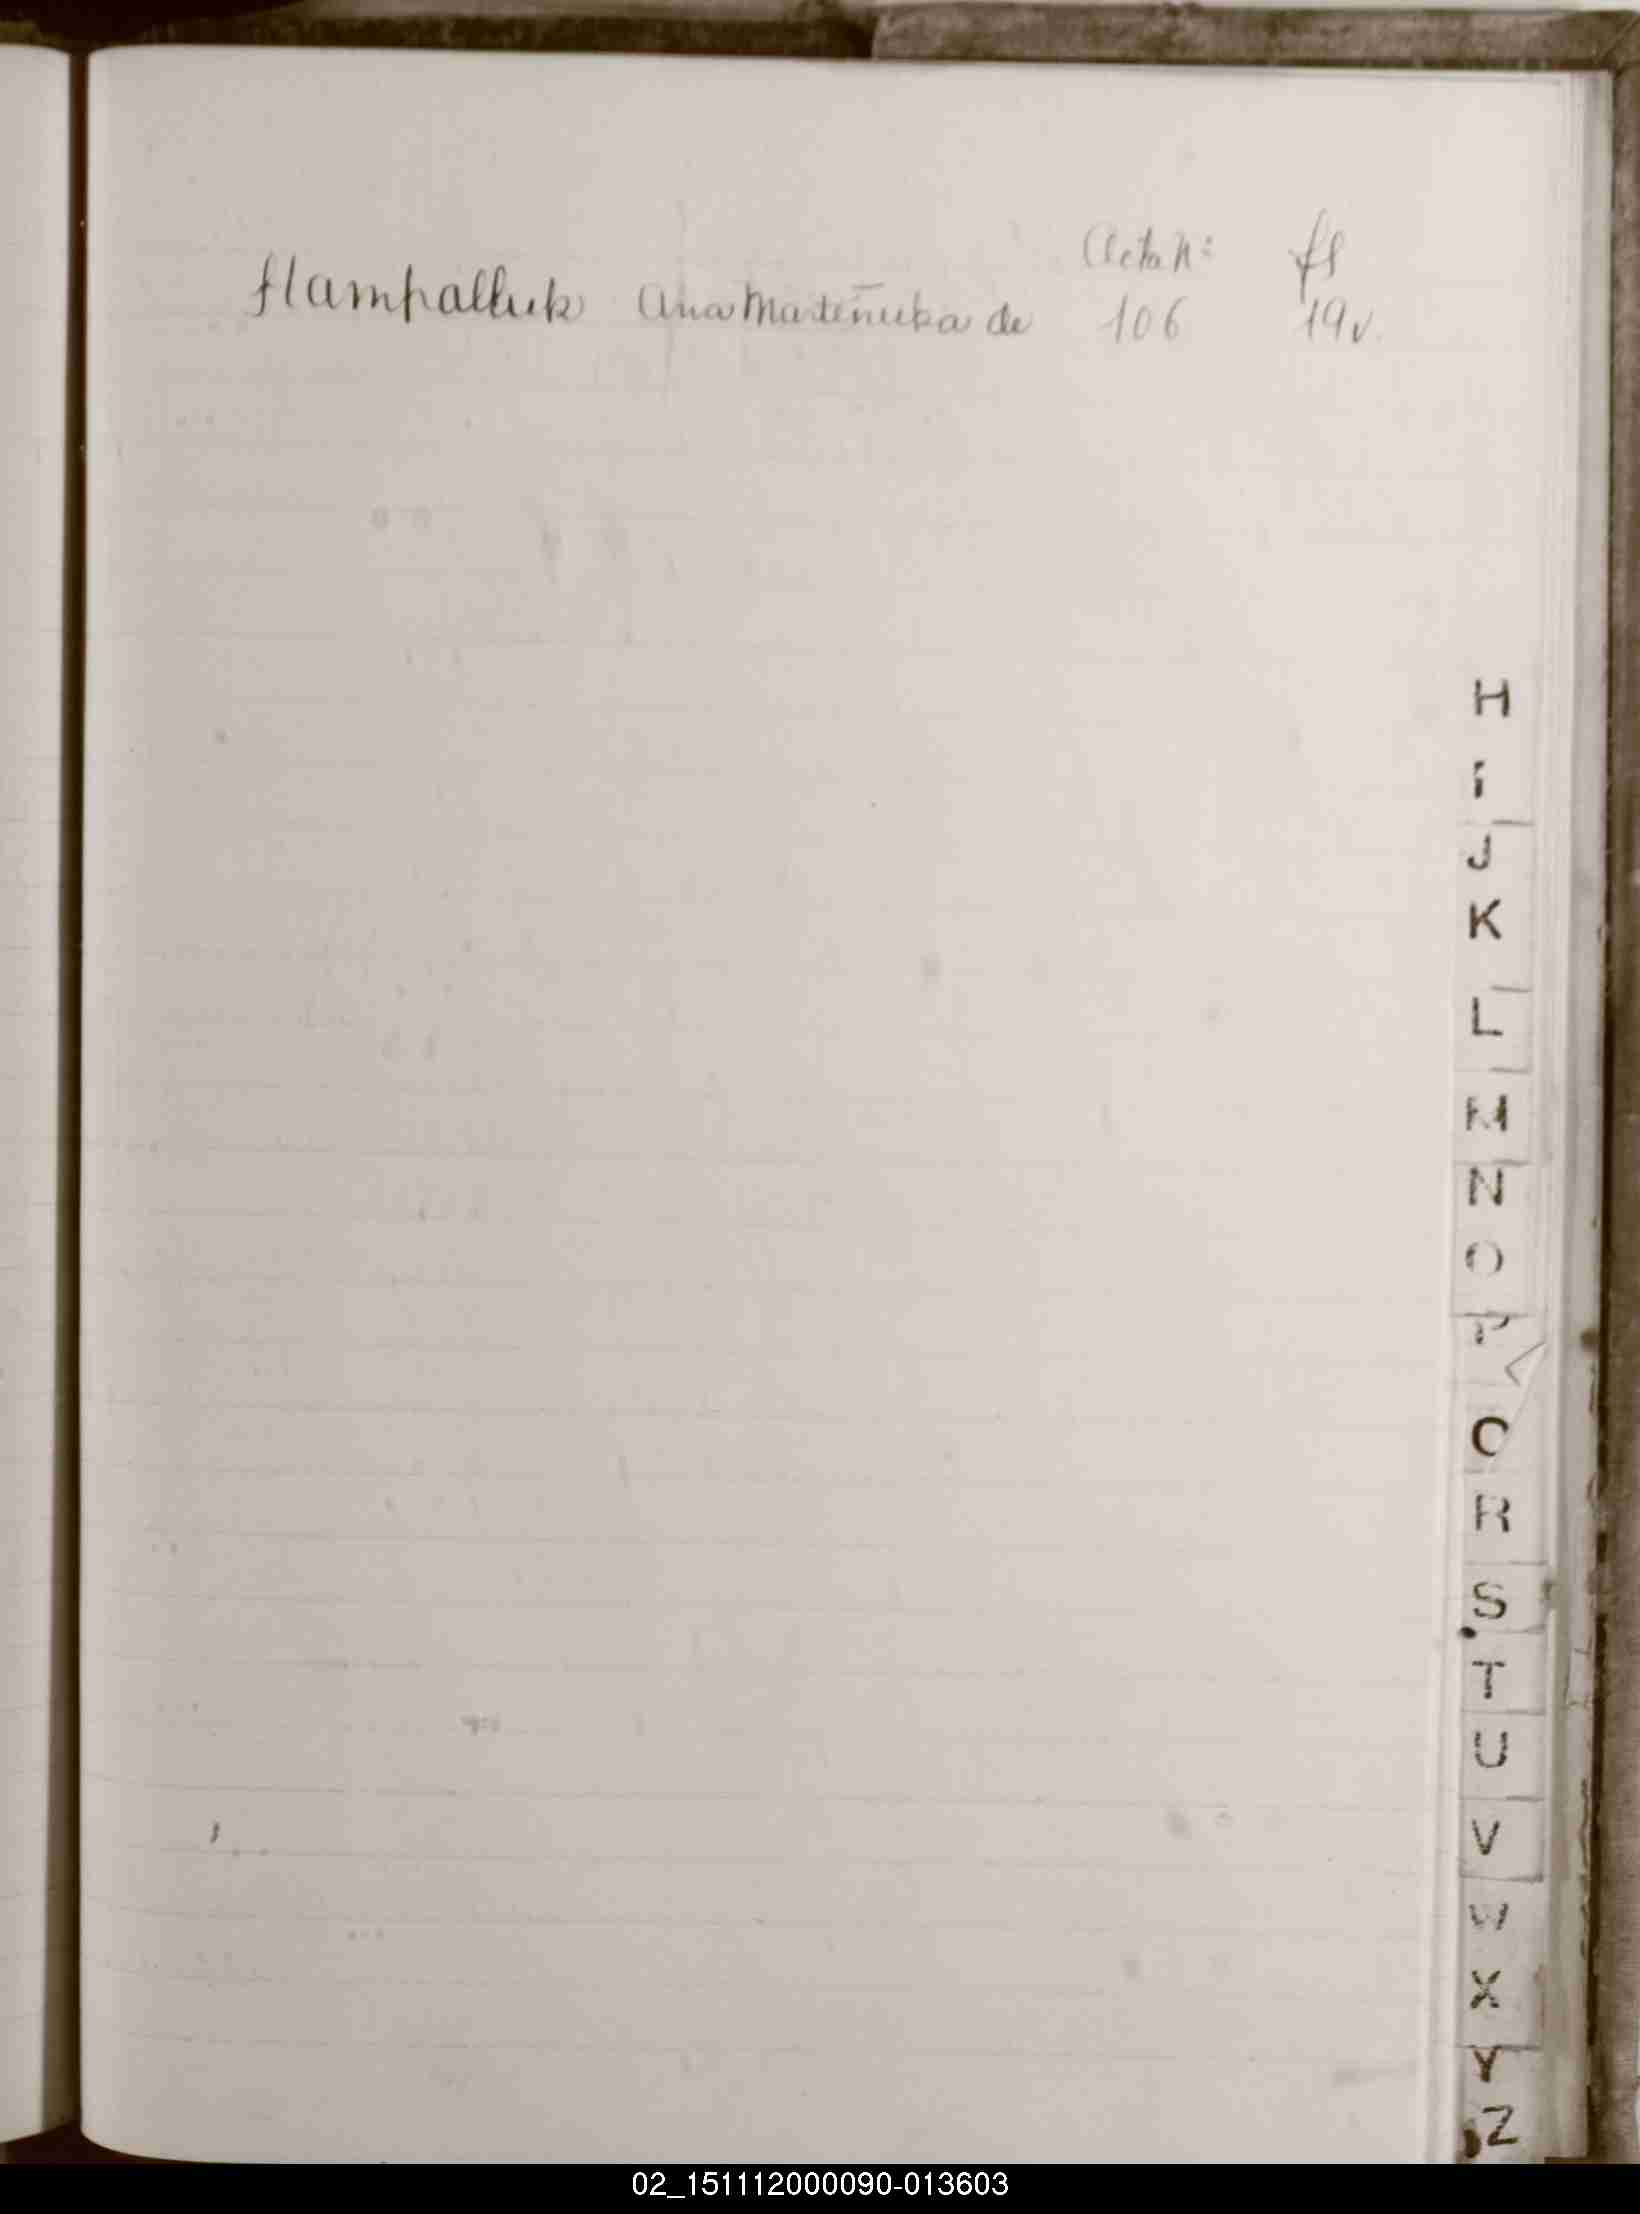 Acta N: fl
Hampalluk Ana Marteñuka de 106 19v.
H
I
J
K
L
M
N
O
P
Q
R
S
T
U
V
W
X
Y
Z
02_151112000090-013603